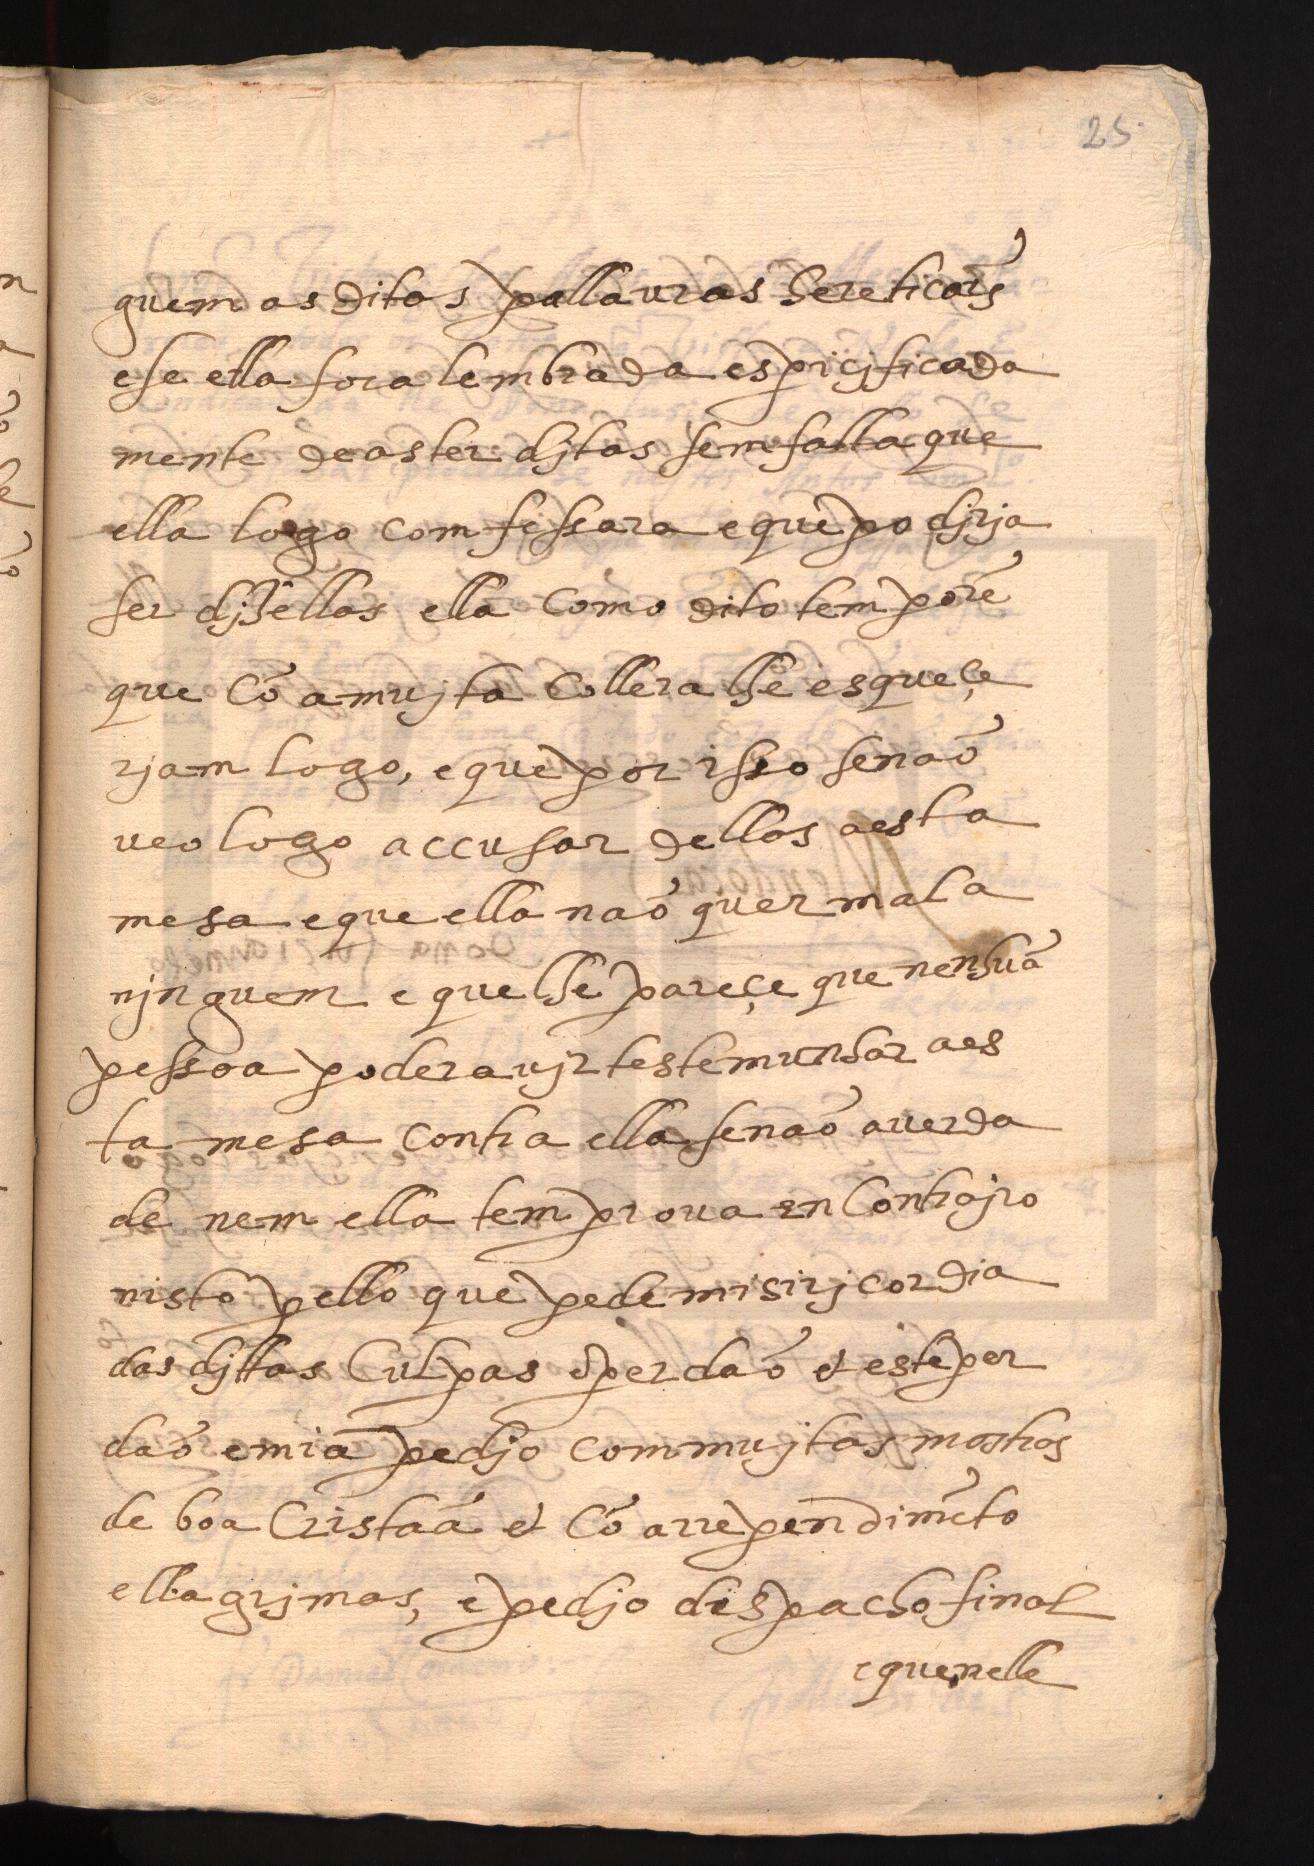 25
guem as ditas pallauras hereticaís
e se ella fora lembrada espicificada
mente de as ter djtas sem falta que
ella logo comfessara e que podjrja
ser djzellas ella como dito tem porẽ
que cõ a mujta collera lhe esqueçe
rjam logo, e que por isso se naõ
ueo logo accusar dellas a esta
mesa e que ella naõ quer mal a
njnguem e que lhe pareçe que nenhuã
pessoa podera ujr testemunhar a es
ta mesa contra ella se naõ a uerda
de nem ella tem proua en contrajro
nisto pello que pede misirjcordia
das djttas culpas e perdaõ et este per
daõ e mia pedjo com mujtas mostras
de boa cristaã et cõ arrependimẽto
e llagrjmas, e pedjo despacho final
e que nelle